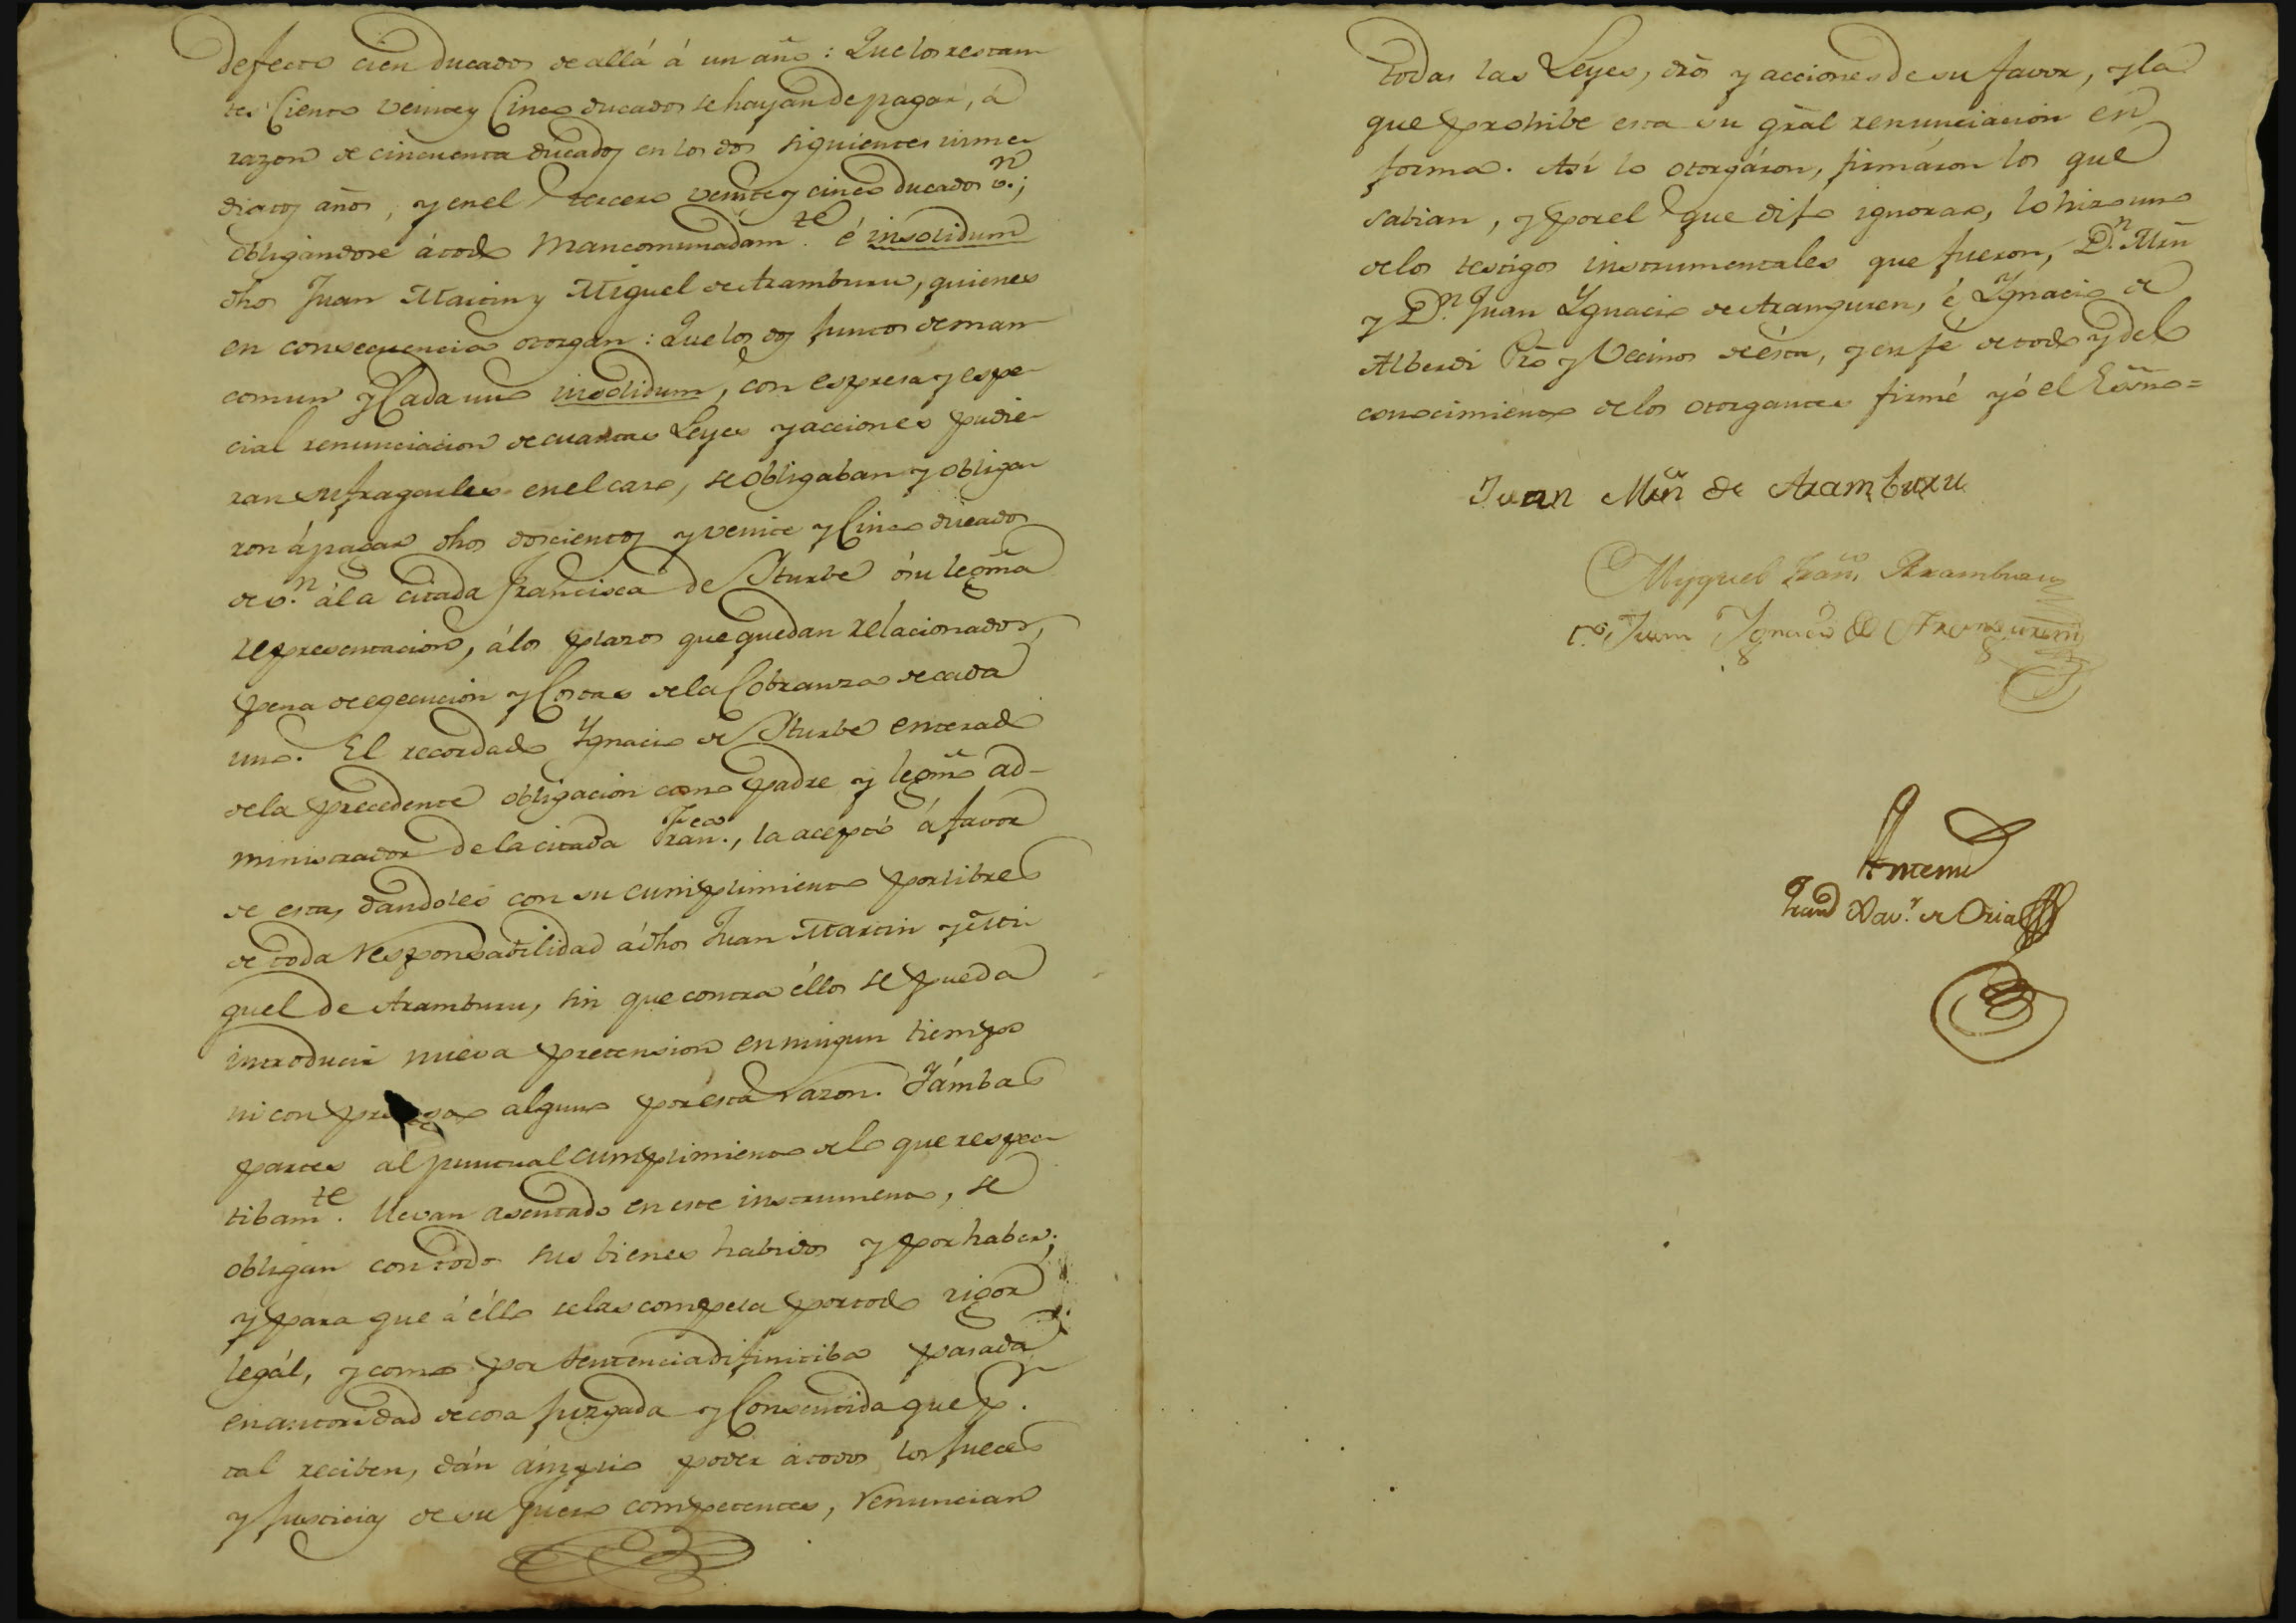 defecto cien ducados de allá á un año: Que los restan
tes Ciento veinte y Cinco ducados se hayan de pagar, á
razon de cincuenta ducados en los dos siguientes inme-
diatos años, y en el tercero veinte y cinco ducados v.n;
obligandose á todo Mancomunadam.te é insolidum
dhos Juan Martin y Miguel de Aramburu, quienes
en consecuencia otorgan: Que los dos juntos de man
comun y Cada uno insolidum, con espresa y espe-
cial renunciacion de cuantas Leyes y acciones pudie-
ran sufragarles en el caso, se obligaban y obliga-
ron á pagar dhos doscientos y veinte y Cinco ducados
de v.n á la citada Francisca de Yturbe ó su legma
representacion, á los plazos que quedan relacionados,
pena de egecucion y Costas de la Cobranza de cada
uno. El recordado Ygnacio de Yturbe enterado
de la precedente obligacion como padre y legmo ad-
ministrador de la citada Fran.ca, la aceptó á favor
de esta, dandoles con su cumplimiento por libres
de toda responsabilidad á dhos Juan Martin y Mi
guel de Aramburu, sin que contra éllos se pueda
introducir nueva pretension en ningun tiempo
ni con alguno por ésta razon. Y ámbas
partes al puntual cumplimiento de lo que respec-
tibam.te llevan asentado en este instrumento, se
obligan con todos sus bienes habidos y por haber;
y para que á éllo se las compela por todo rigor
legál, y como por sentencia difinitiba pasada
en autoridad de cosa juzgada y Consentida que p.r
tal reciben, dán ámplio poder á todos los jueces
y justicias de su fuero competentes, renuncian
todas las Leyes, dros y acciones de su favor, y la
que prohibe esta su gral renunciacion en
forma. Así lo otorgáron, firmáron los que
sabian, y por el que dijo ignorar, lo hizo uno
de los testigos instrumentales que fueron, D.n Mñ
y D.n Juan Ygnacio de Aranguren, é Ygnacio de
Alberdi Pro y Vecinos de ésta, y en fé de todo y del
conocimiento de los otorgantes firmé yó el Essno=
Juan Mñ de Aramburu
Myguel Fran.co Aramburu
t.o Juan Ygnacio de Aranguren
Antemi
Xav.r de Oria